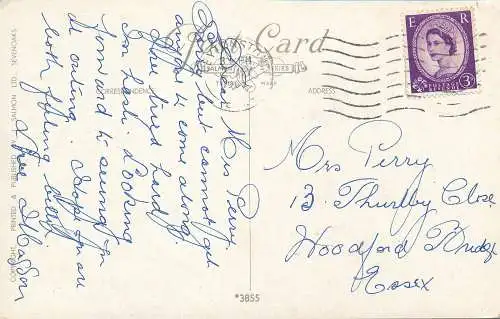 Post Card
CORRESPONDENCE
ADDRESS
Dear Mrs Perry.
but cannot get
anyone to come along.
tried hard
Looking
forward to seeing you
at outing. Hope you are
both feeling better
E R
3D
POSTAGE REVENUE
Mrs Perry
13 Thurlby Close
Woodford Bridge
Essex
*3855
COPYRIGHT, PRINTED & PUBLISHED BY J. SALMON LTD., SEVENOAKS